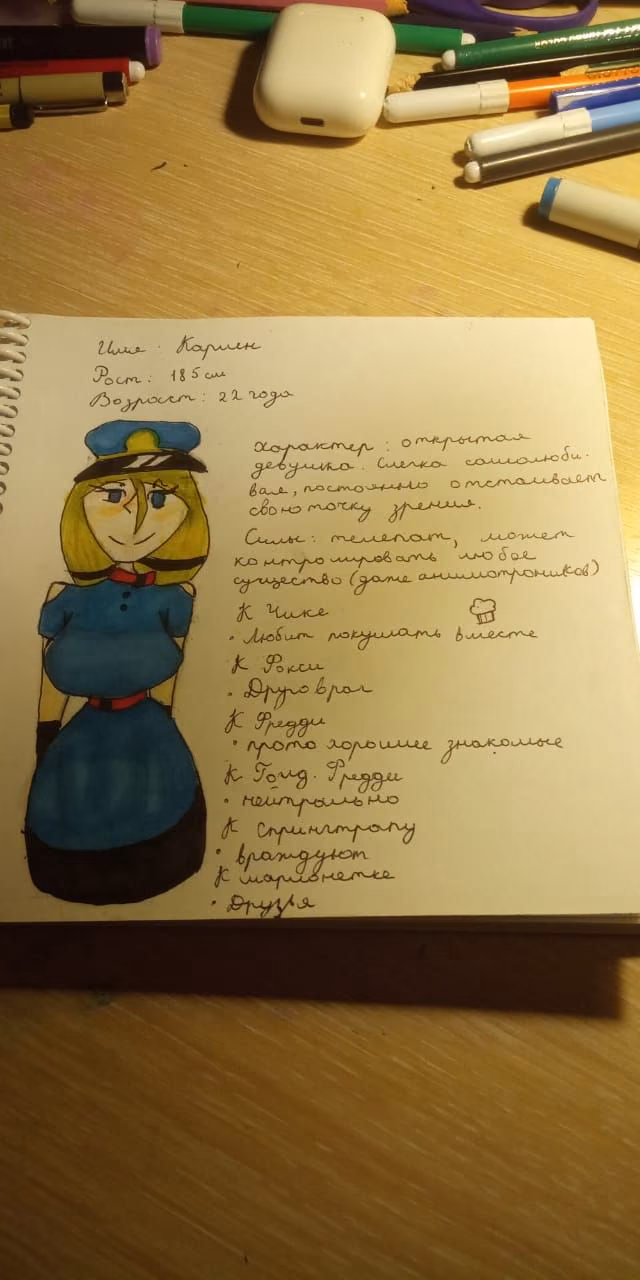 Имя: Кармен
Рост: 185 см
Возраст: 22 года
Характер: открытая
девушка. Слегка самолюби-
вая, постоянно отстаивает
свою точку зрения.
Силы: телепат, может
контролировать любое
существо (даже аниматроников)
К Чике
• Любит покушать вместе
К Фокси
• Друговраг
К Фредди
• прото хорошие знакомые
К Голд. Фредди
• нейтрально
К спрингтрапу
• враждуют
К марионетке
• Друзья